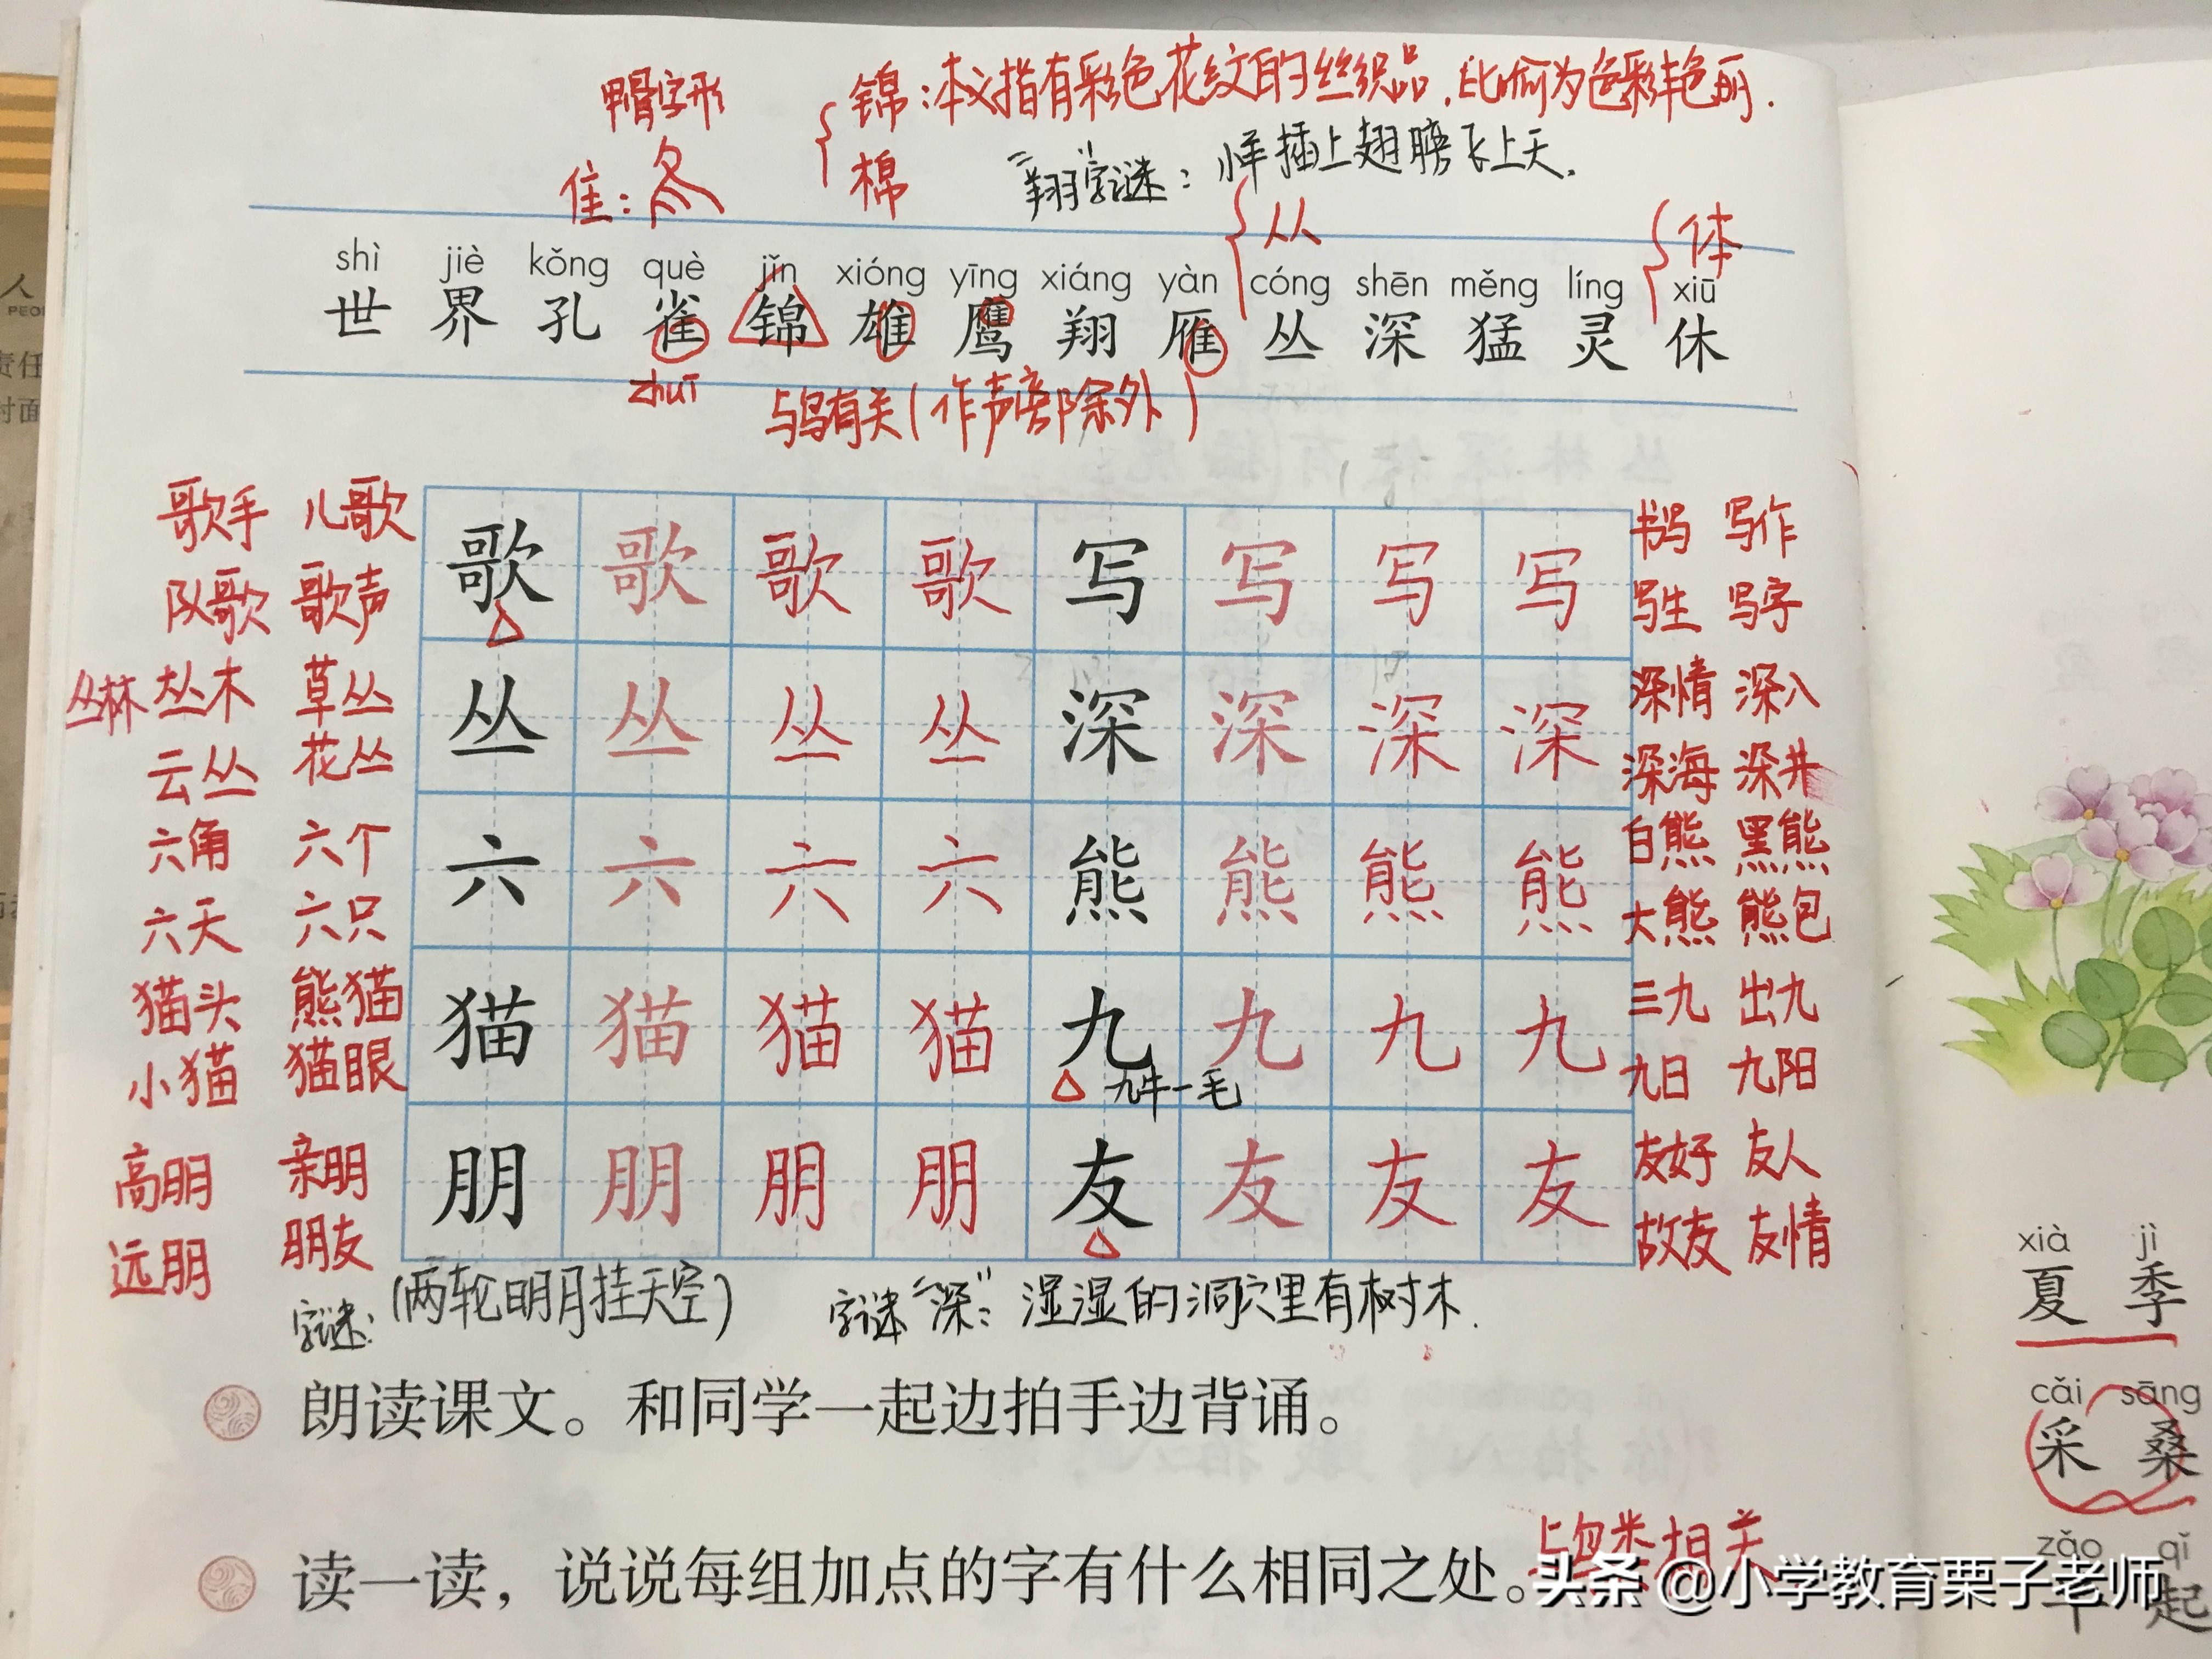 甲骨字形
锦：本义指有彩色花纹的丝织品，比喻为色彩艳丽.
棉
隹：
"翔"字谜：小羊插上翅膀飞上天.
从
体
shì jiè kǒng què jǐn xióng yīng xiáng yàn cóng shēn měng líng xiū
世 界 孔 雀 锦 雄 鹰 翔 雁 丛 深 猛 灵 休
zhuī
与鸟有关（作声旁除外）
歌手 儿歌 歌 歌 歌 歌 写 写 写 写 书写 写作
队歌 歌声 写生 写字
丛林 丛木 草丛 丛 丛 丛 丛 深 深 深 深 深情 深入
云丛 花丛 深海 深井
六角 六个 六 六 六 六 熊 熊 熊 熊 白熊 黑熊
六天 六只 大熊 熊包
猫头 熊猫 猫 猫 猫 猫 九 九 九 九 三九 出九
小猫 猫眼 九牛一毛 九日 九阳
高朋 亲朋 朋 朋 朋 朋 友 友 友 友 友好 友人
远朋 朋友 故友 友情
字谜：（两轮明月挂天空）
字谜"深"：湿湿的洞穴里有树木.
朗读课文。和同学一起边拍手边背诵。
读一读，说说每组加点的字有什么相同之处。
与鸟类相关
xià jì
夏 季
cǎi sāng
采 桑
zǎo qǐ
早 起
人
PEO
责任
封面
头条 @小学教育栗子老师